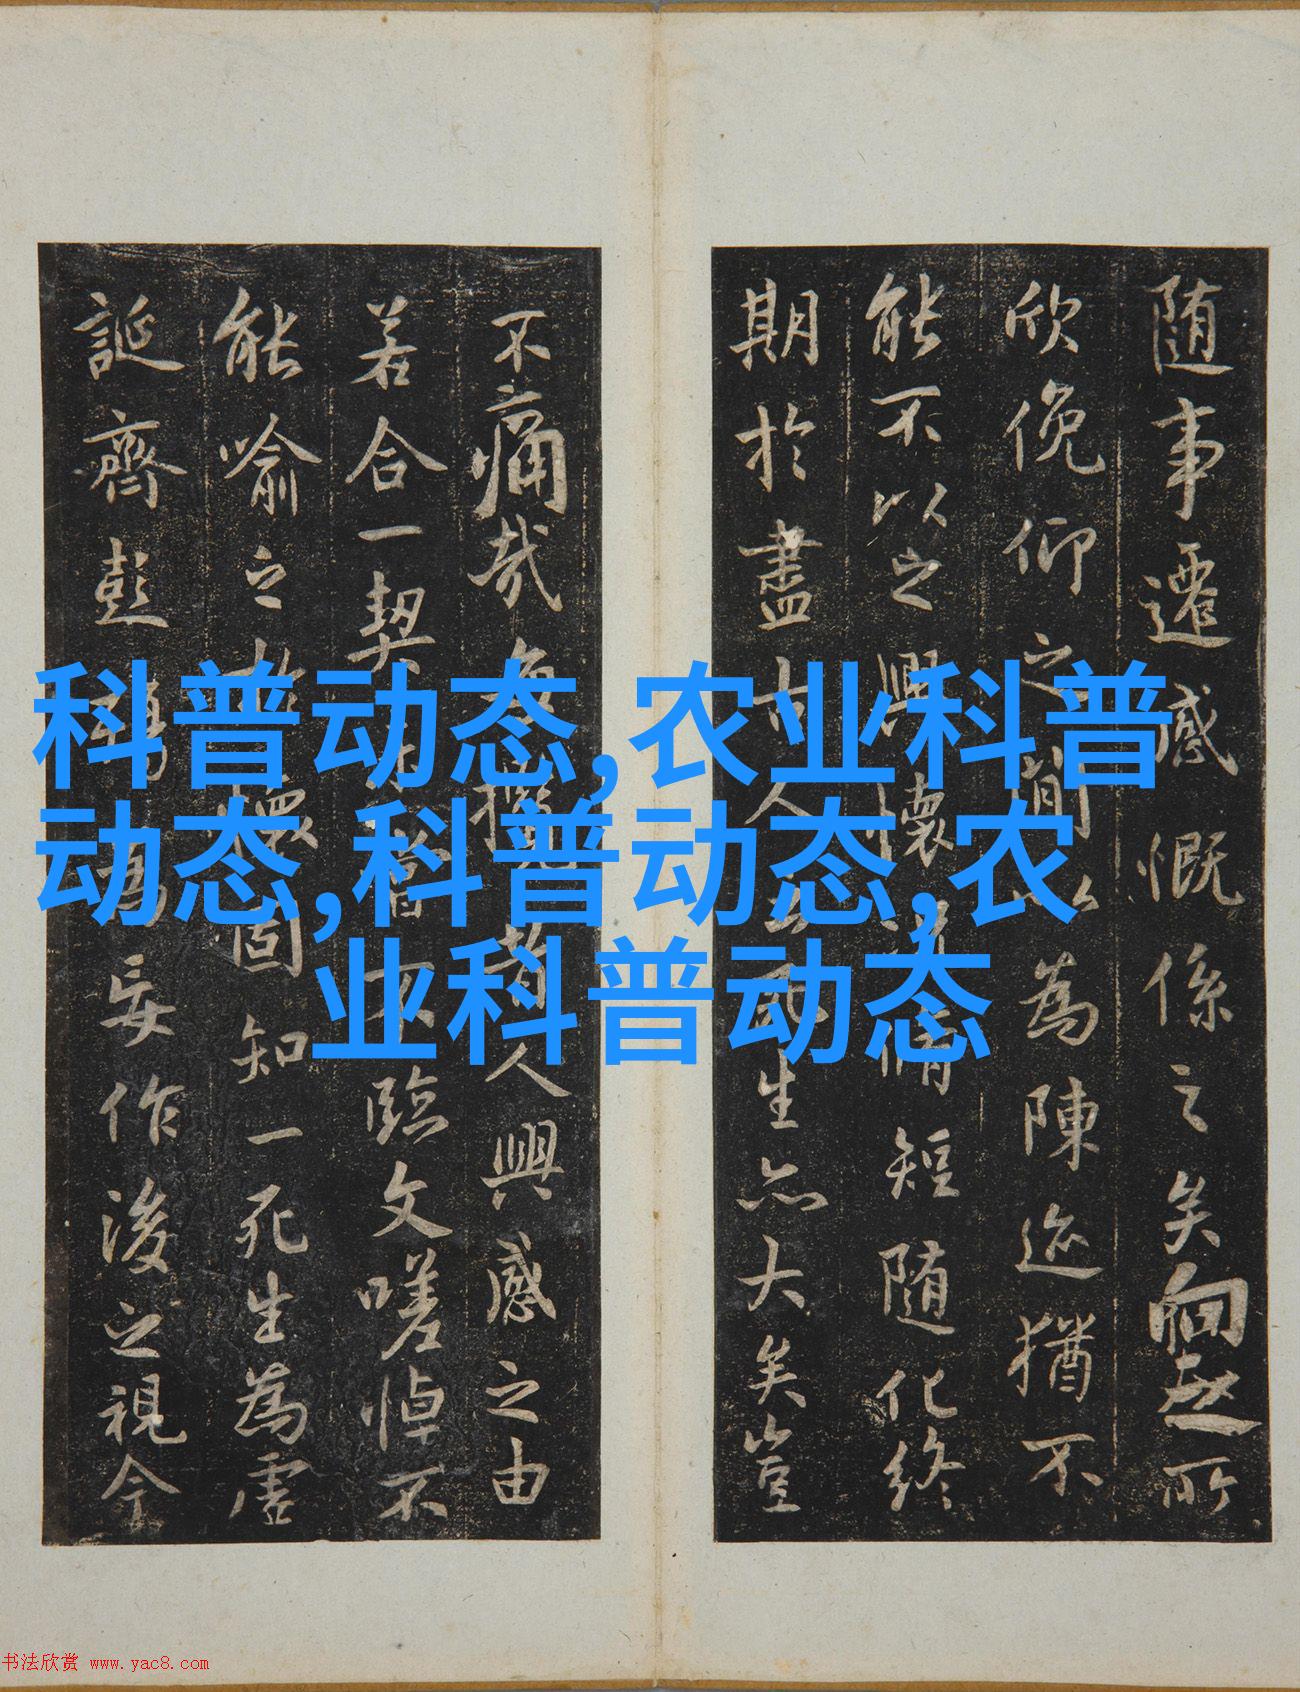 随事遷感慨係之矣向之所
欣俛仰之閒以為陳迹猶不
能不以之興懷況脩短随化終
期於盡古人云死生亦大矣豈
不痛哉每攬昔人興感之由
若合一契未嘗不臨文嗟悼不
能喻之於懷固知一死生為虛
誕齊彭殤為妄作後之視今
科普动态,农业科普
动态,科普动态,农
业科普动态
书法欣赏 www.yac8.com